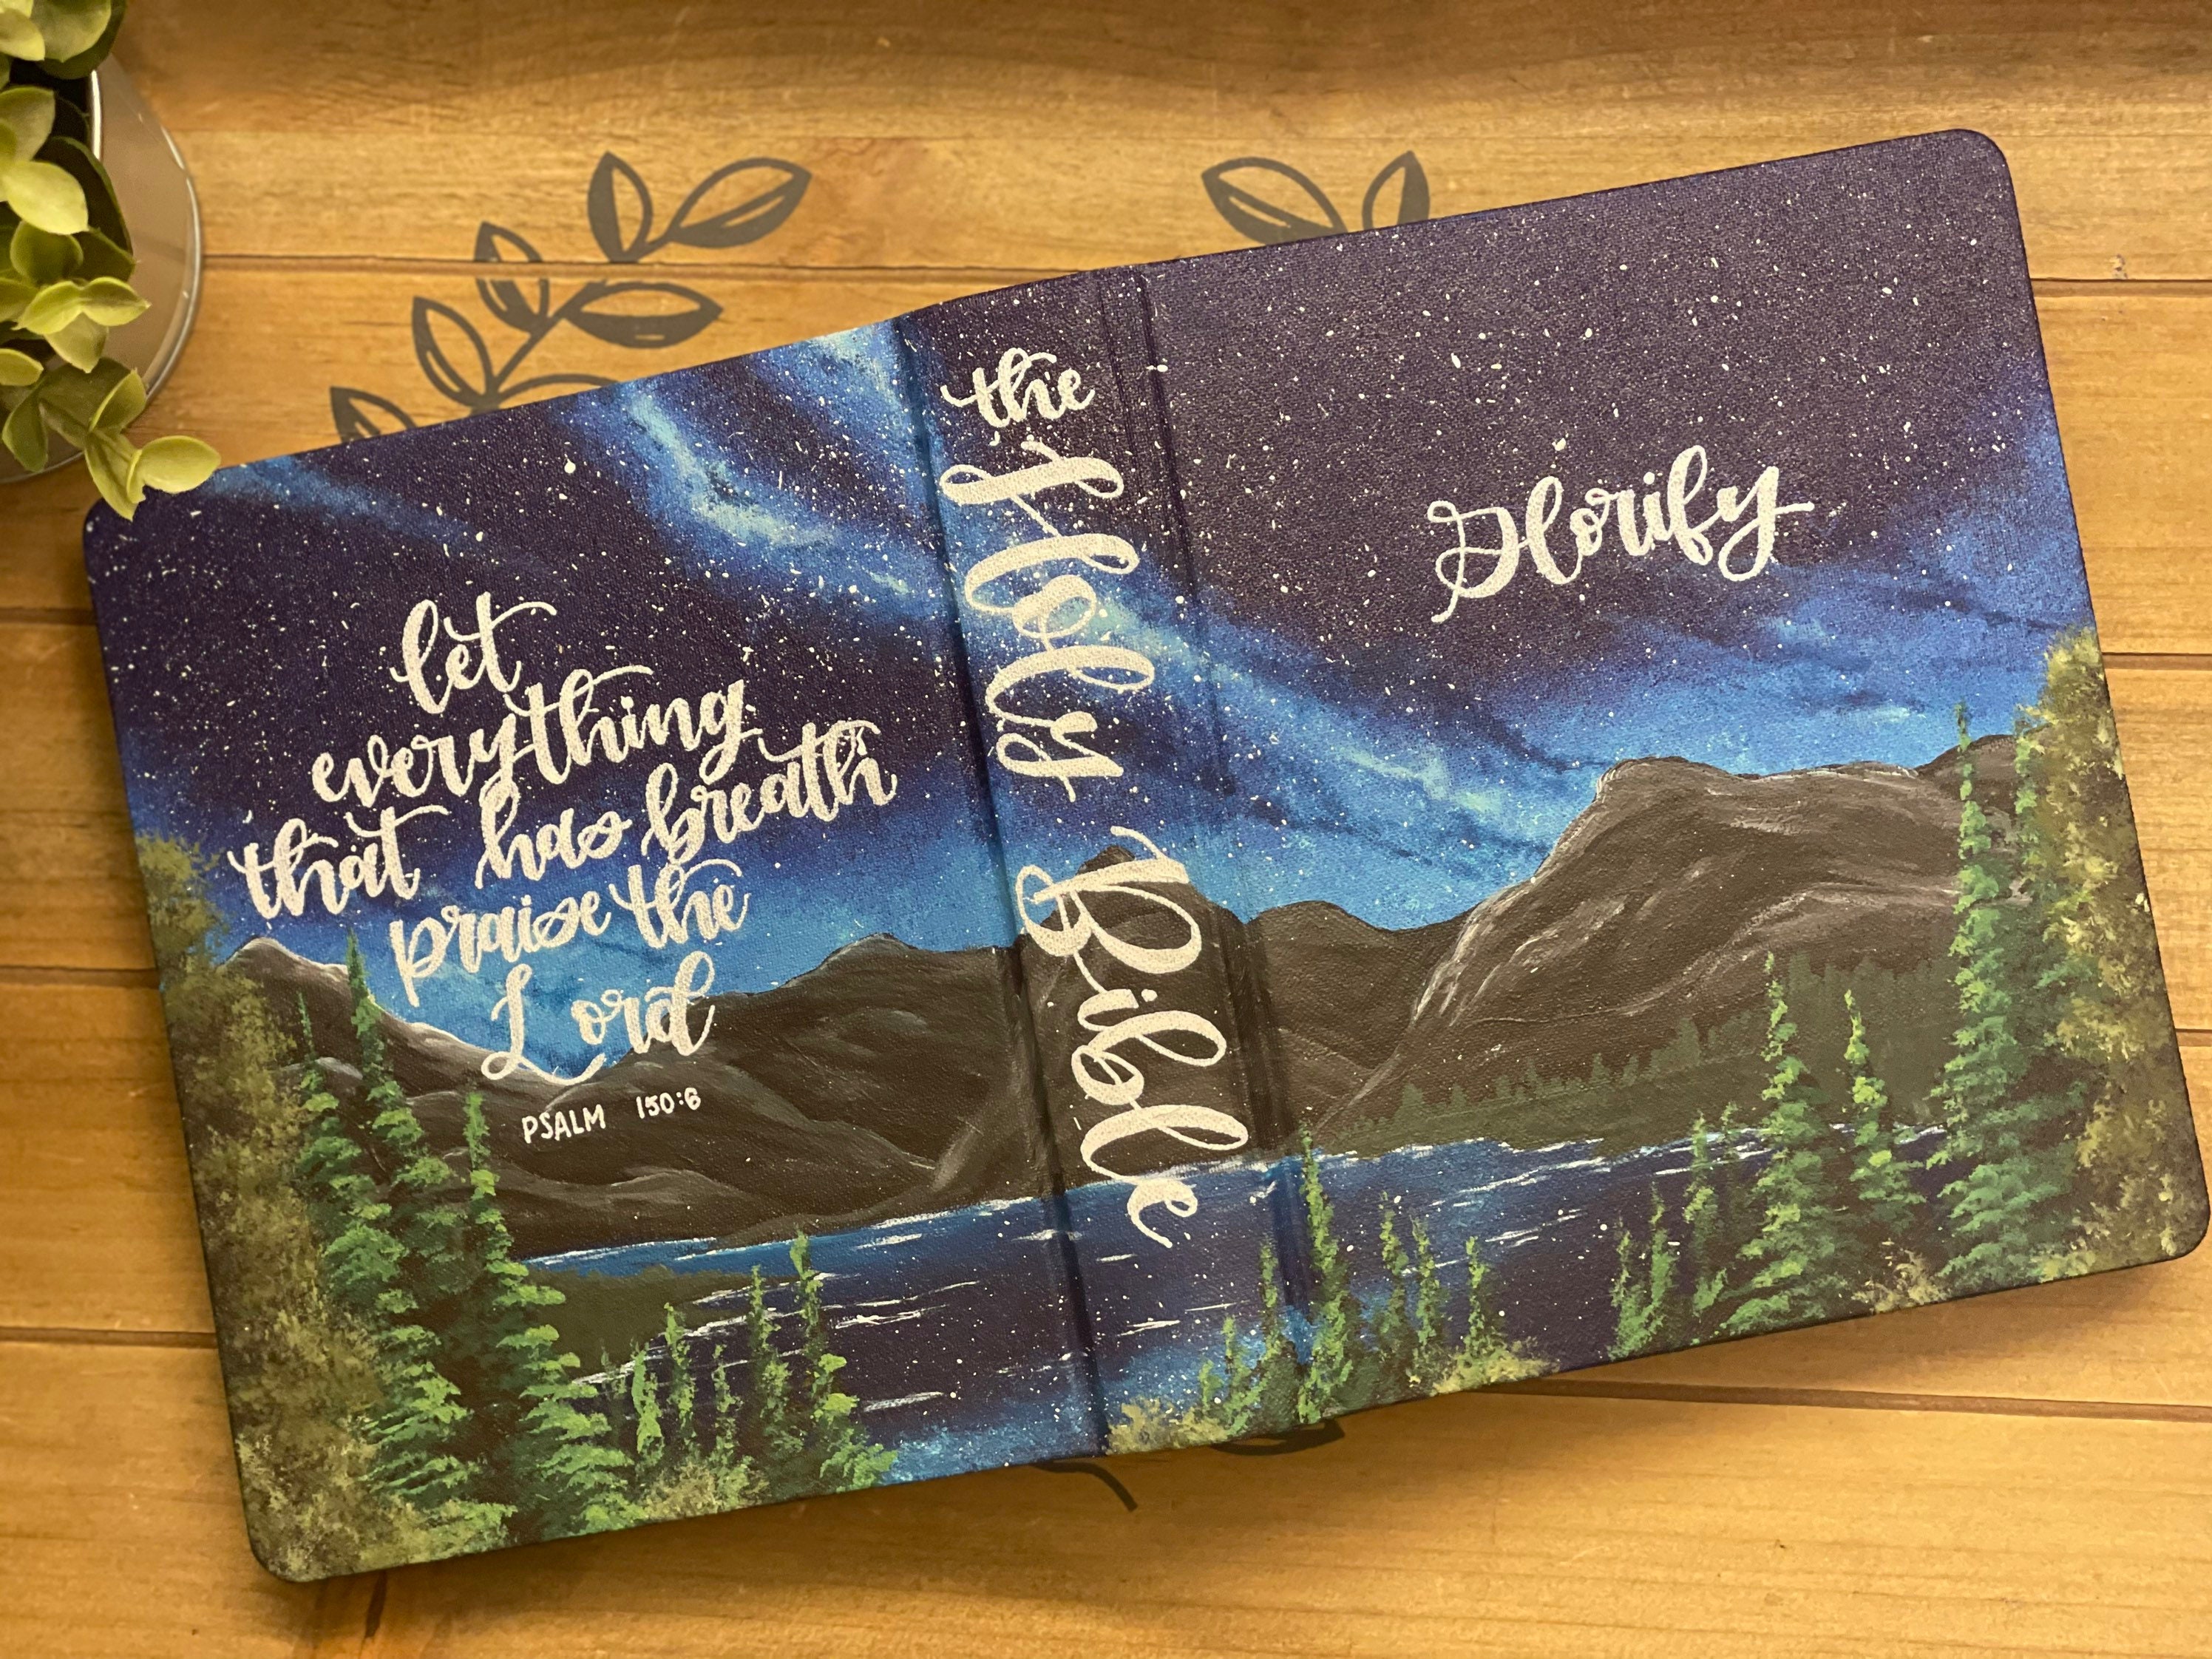 let
everything
that has breath
praise the
Lord
PSALM 150:6
the Holy Bible
Glorify